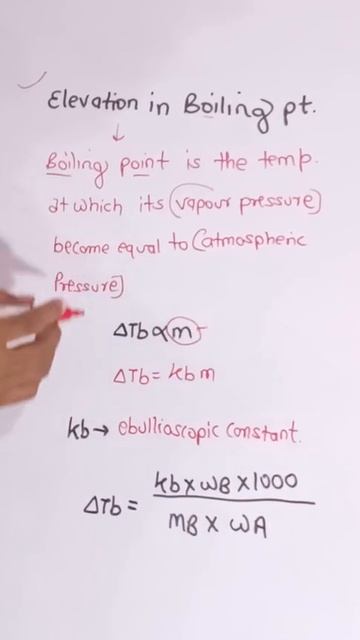 Elevation in Boiling pt.
↓
Boiling point is the temp.
at which its (vapour pressure)
become equal to (atmospheric
Pressure)
ΔTb ∝ m
ΔTb = kb m
kb → ebullioscopic Constant.
ΔTb = kb × WB × 1000
MB × WA